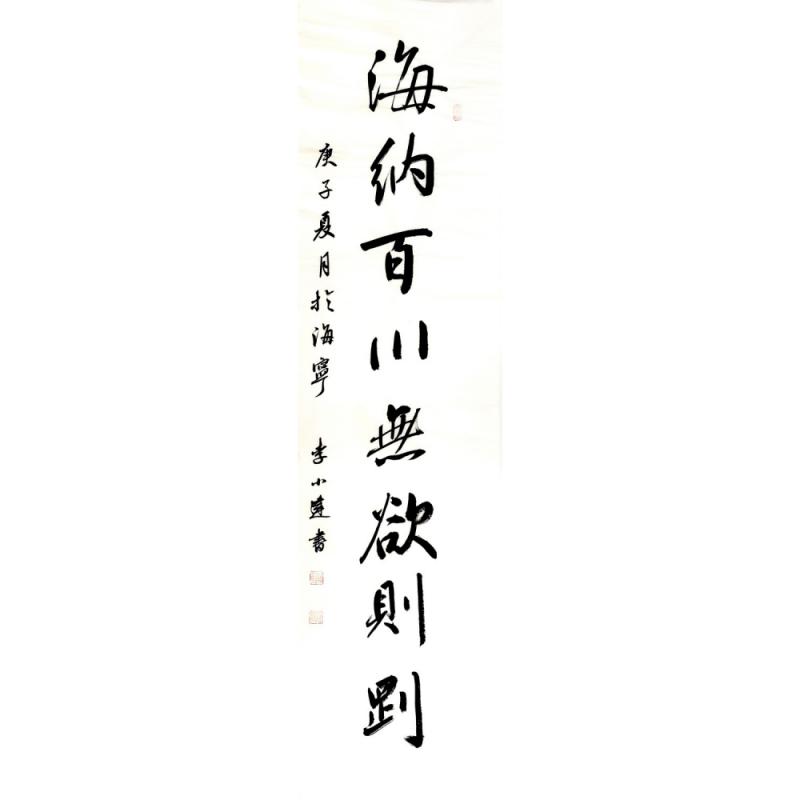 海納百川無欲則剛
庚子夏月於海寧 李小達書